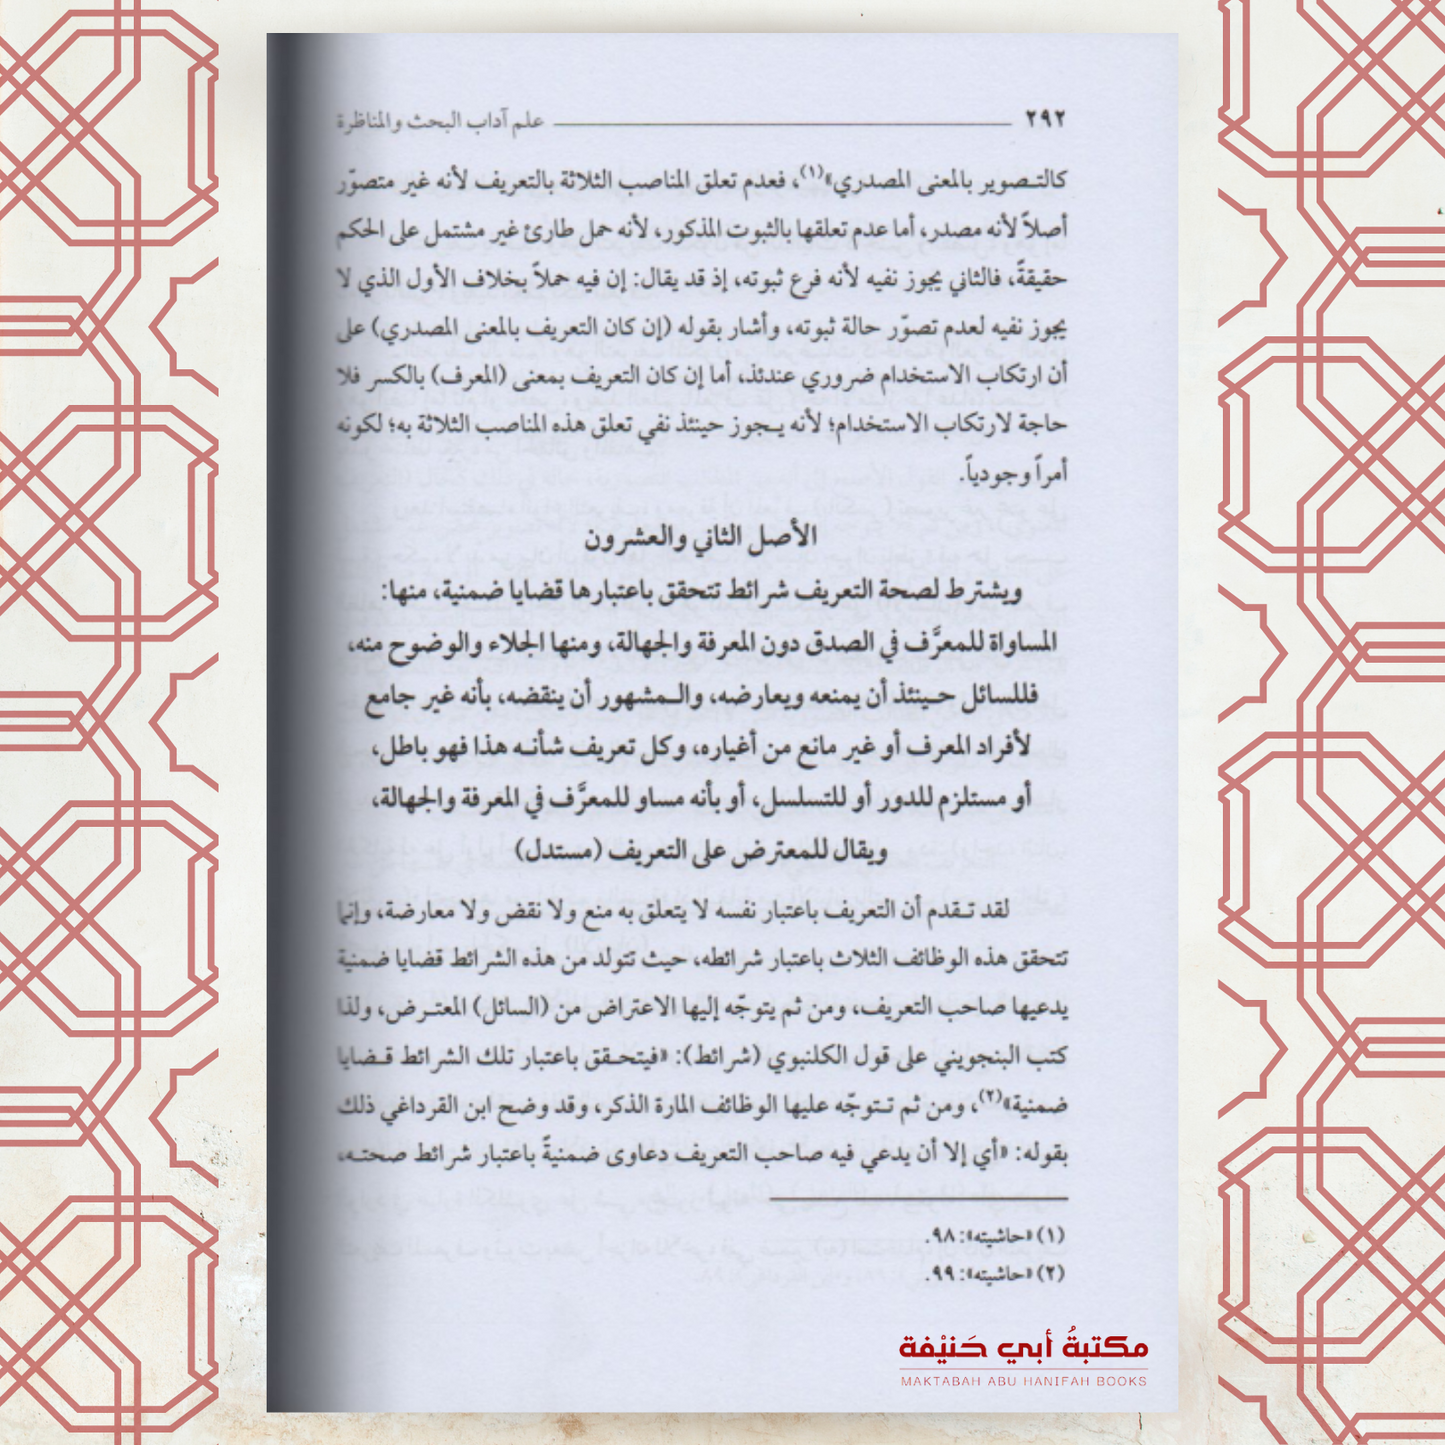 ٢٩٢ علم آداب البحث والمناظرة
كالتصوير بالمعنى المصدري»(١)، فعدم تعلق المناصب الثلاثة بالتعريف لأنه غير متصوّر
أصلاً لأنه مصدر، أما عدم تعلقها بالثبوت المذكور، لأنه حمل طارئ غير مشتمل على الحكم
حقيقةً، فالثاني يجوز نفيه لأنه فرع ثبوته، إذ قد يقال: إن فيه حملاً بخلاف الأول الذي لا
يجوز نفيه لعدم تصوّر حالة ثبوته، وأشار بقوله (إن كان التعريف بالمعنى المصدري) على
أن ارتكاب الاستخدام ضروري عندئذ، أما إن كان التعريف بمعنى (المعرف) بالكسر فلا
حاجة لارتكاب الاستخدام؛ لأنه يجوز حينئذ نفي تعلق هذه المناصب الثلاثة به؛ لكونه
أمراً وجودياً.
الأصل الثاني والعشرون
ويشترط لصحة التعريف شرائط تتحقق باعتبارها قضايا ضمنية، منها:
المساواة للمعرَّف في الصدق دون المعرفة والجهالة، ومنها الجلاء والوضوح منه،
فللسائل حينئذ أن يمنعه ويعارضه، والمشهور أن ينقضه، بأنه غير جامع
لأفراد المعرف أو غير مانع من أغياره، وكل تعريف شأنه هذا فهو باطل،
أو مستلزم للدور أو للتسلسل، أو بأنه مساو للمعرَّف في المعرفة والجهالة،
ويقال للمعترض على التعريف (مستدل)
لقد تقدم أن التعريف باعتبار نفسه لا يتعلق به منع ولا نقض ولا معارضة، وإنما
تتحقق هذه الوظائف الثلاث باعتبار شرائطه، حيث تتولد من هذه الشرائط قضايا ضمنية
يدعيها صاحب التعريف، ومن ثم يتوجّه إليها الاعتراض من (السائل) المعترض، ولذا
كتب البنجويني على قول الكلنبوي (شرائط): «فيتحقق باعتبار تلك الشرائط قضايا
ضمنية»(٢)، ومن ثم تتوجّه عليها الوظائف المارة الذكر، وقد وضح ابن القرداغي ذلك
بقوله: «أي إلا أن يدعي فيه صاحب التعريف دعاوى ضمنيةً باعتبار شرائط صحته،
(١) «حاشيته»: ٩٨.
(٢) «حاشيته»: ٩٩.
مكتبةُ أبي حَنيْفة
MAKTABAH ABU HANIFAH BOOKS